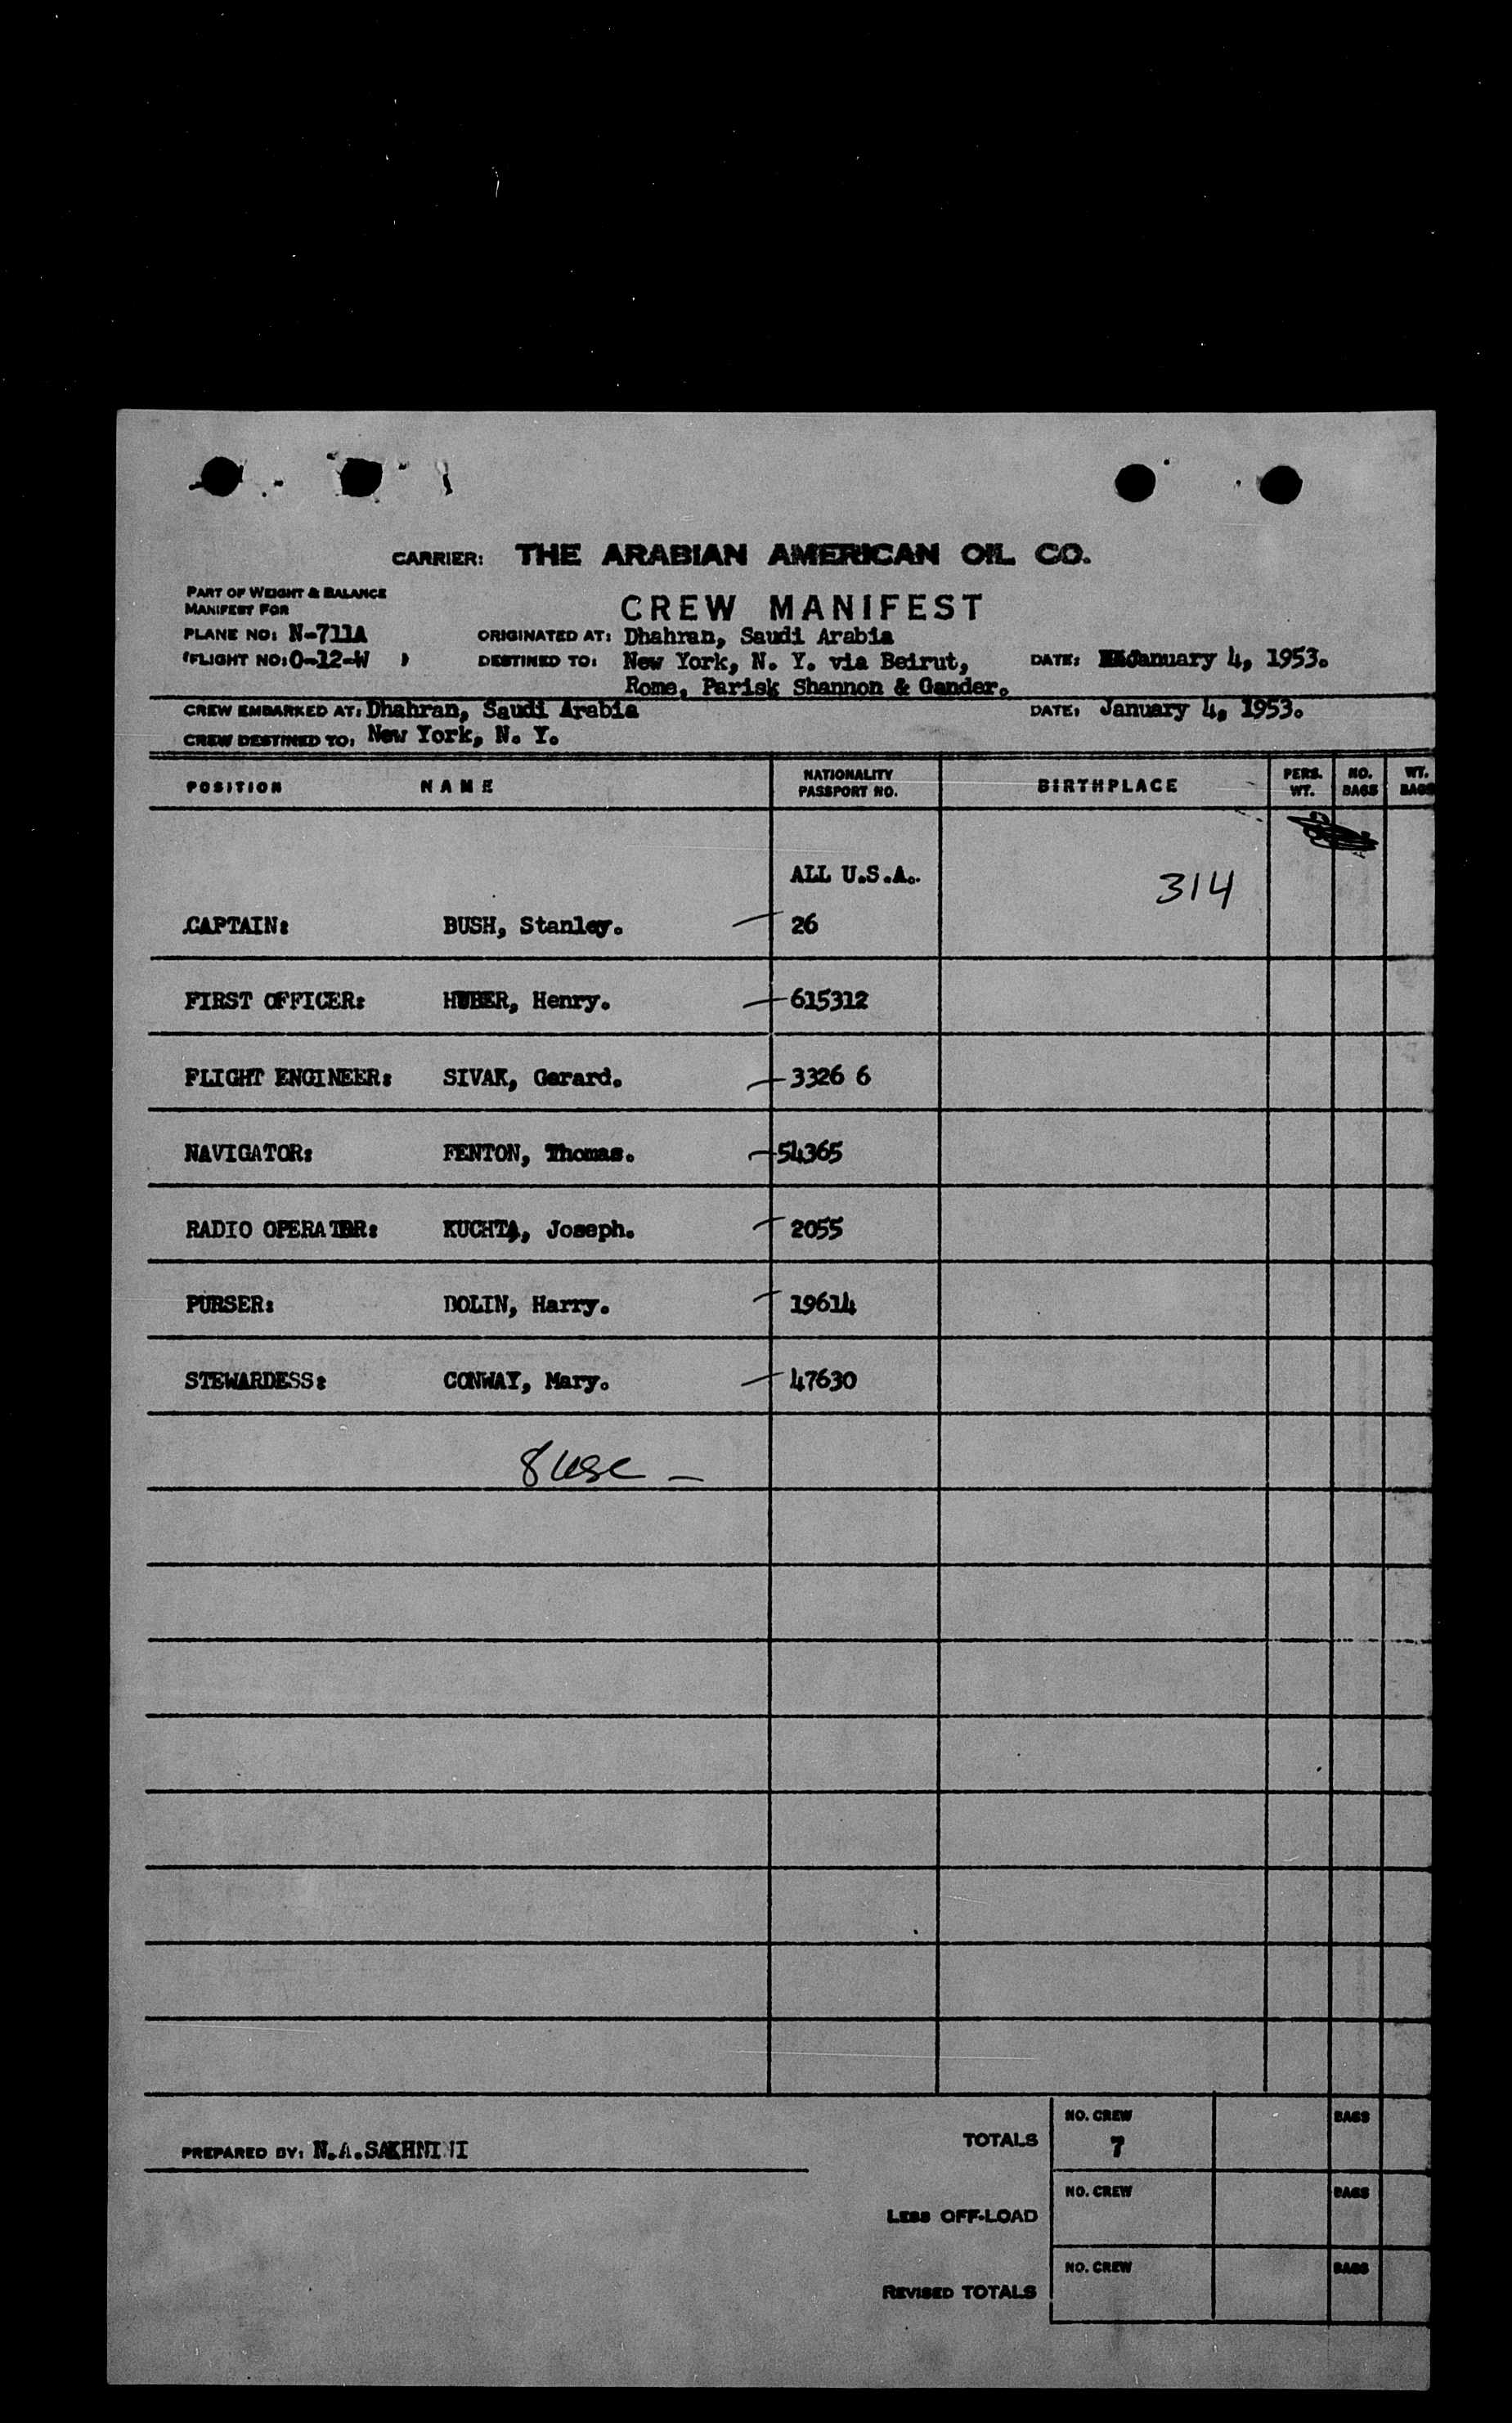 CARRIER: THE ARABIAN AMERICAN OIL CO.
PART OF WEIGHT & BALANCE
MANIFEST FOR
CREW MANIFEST
PLANE NO: N-711A ORIGINATED AT: Dhahran, Saudi Arabia
(FLIGHT NO: O-12-W ) DESTINED TO: New York, N. Y. via Beirut, DATE: January 4, 1953.
Rome, Parisk Shannon & Gander.
CREW EMBARKED AT: Dhahran, Saudi Arabia DATE: January 4, 1953.
CREW DESTINED TO: New York, N. Y.
POSITION NAME NATIONALITY PASSPORT NO. BIRTHPLACE PERS. WT. NO. BAGS WT. BAGS
ALL U.S.A. 314
CAPTAIN: BUSH, Stanley. 26
FIRST OFFICER: HUBER, Henry. 615312
FLIGHT ENGINEER: SIVAK, Gerard. 3326 6
NAVIGATOR: FENTON, Thomas. 54365
RADIO OPERATOR: KUCHTA, Joseph. 2055
PURSER: DOLIN, Harry. 19614
STEWARDESS: CONWAY, Mary. 47630
8 usc –
NO. CREW BAGS
PREPARED BY: N.A.SAKHNINI TOTALS 7
NO. CREW BAGS
LESS OFF-LOAD
NO. CREW BAGS
REVISED TOTALS